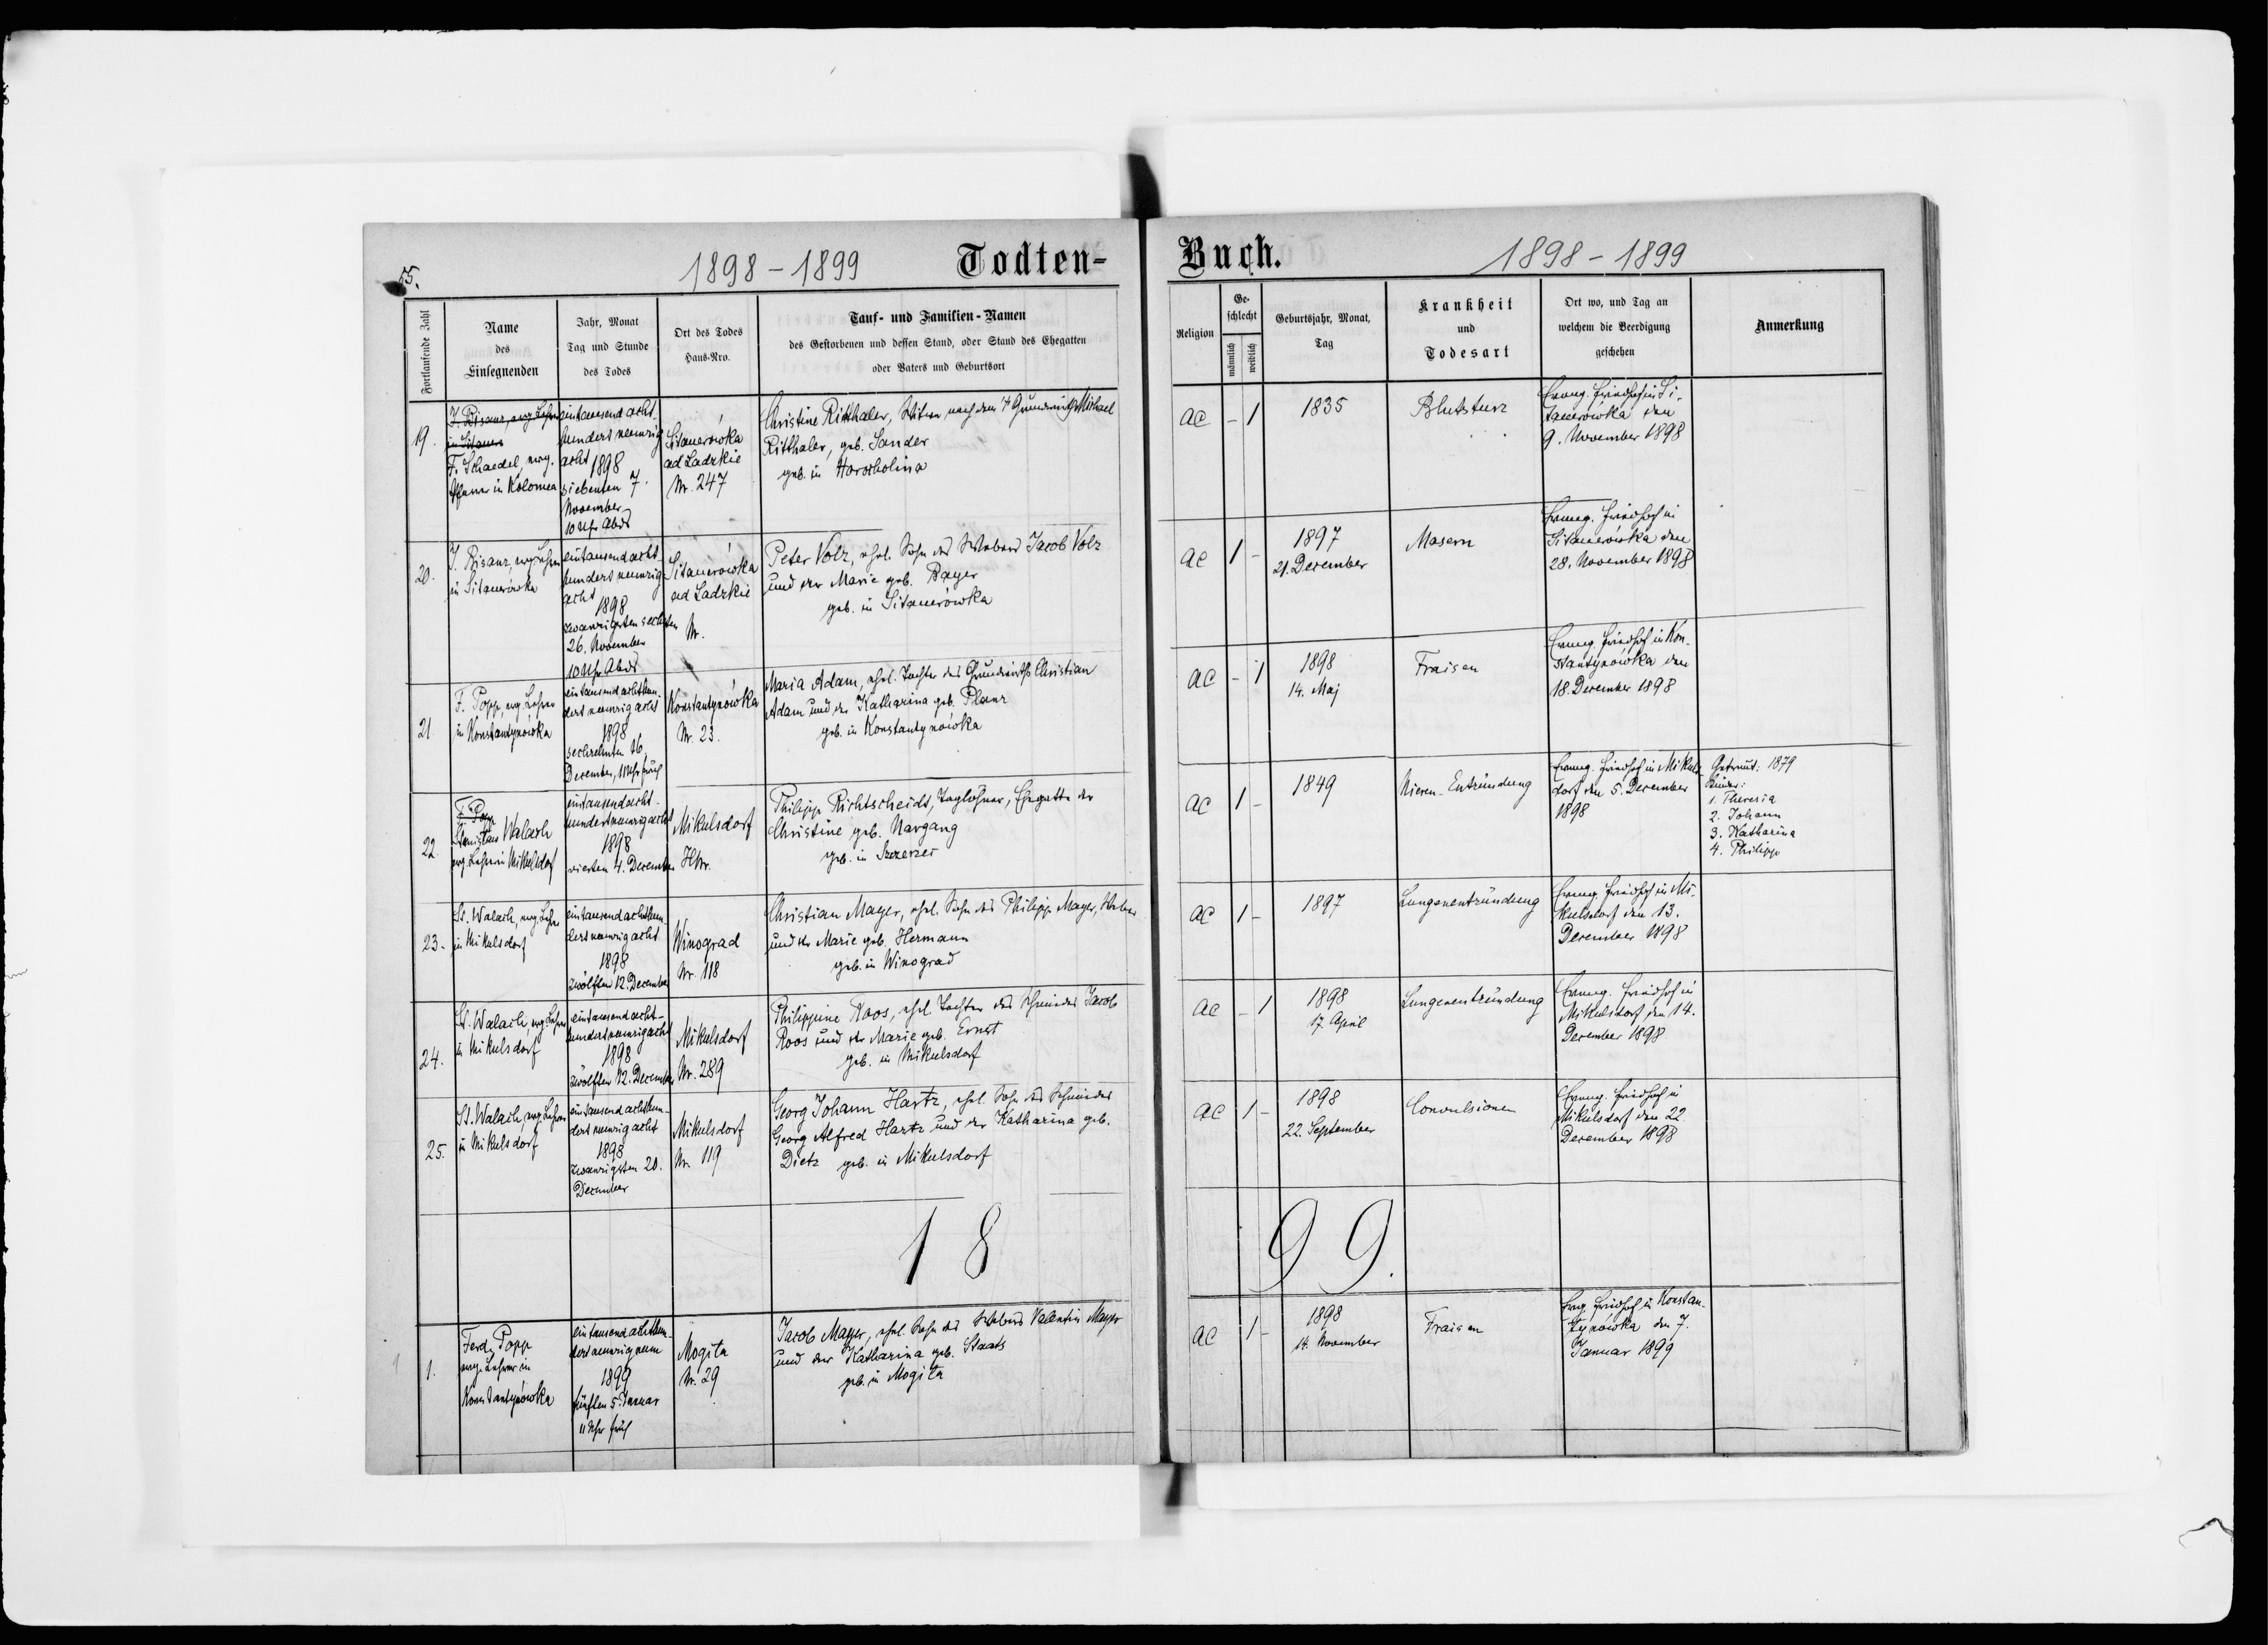 55.
1898 - 1899
Todten-
Buch.
1898 - 1899
Fortlaufende Zahl
Name
des
Einsegnenden
Jahr, Monat
Tag und Stunde
des Todes
Ort des Todes
Haus-Nro.
Tauf- und Familien-Namen
des Gestorbenen und dessen Stand, oder Stand des Ehegatten
oder Vaters und Geburtsort
Religion
Ge-
schlecht
männlich
weiblich
Geburtsjahr, Monat,
Tag
Krankheit
und
Todesart
Ort wo, und Tag an
welchem die Beerdigung
geschehen
Anmerkung
19.
J. Bisanz, evg. Lehrer
in Sitauer
F. Schaedel, evg.
Pfarrer in Kolomea
eintausend acht-
hundert neunzig
acht 1898
siebenten 7.
November
10 Uhr Abds
Sitauerówka
ad Ladzkie
Nr. 247
Christine Ritthaler, Witwe nach dem † Grundwirth Michael
Ritthaler, geb. Sander
geb. in Horocholina
AC - 1
1835
Blutsturz
Evang. Friedhof in Si-
tauerówka den
9. November 1898
20.
J. Bisanz, evg. Lehrer
in Sitauerówka
eintausend acht-
hundert neunzig
acht
1898
zwanzigsten sechsten
26. November
10 Uhr Abds
Sitauerówka
ad Ladzkie
Nr.
Peter Volz, ehel. Sohn des Webers Jacob Volz
und der Marie geb. Bayer
geb. in Sitauerówka
AC 1 -
1897
21. December
Masern
Evang. Friedhof in
Sitauerówka den
28. November 1898
21.
F. Popp, evg. Lehrer
in Konstantynówka
eintausend achthun-
dert neunzig acht
1898
sechzehnten 16.
December, 11 Uhr früh
Konstantynówka
Nr. 23.
Maria Adam, ehel. Tochter des Grundwirths Christian
Adam und der Katharina geb. Planz
geb. in Konstantynówka
AC - 1
1898
14. Maj
Fraisen
Evang. Friedhof in Kon-
stantynówka den
18. December 1898
22.
F. Popp
Stanislaus Walach
evg. Lehrer in Mikulsdorf
eintausend acht-
hundert neunzig acht
1898
vierten 4. December
Mikulsdorf
HNr.
Philipp Richtscheidt, Taglöhner, Ehegatte der
Christine geb. Nargang
geb. in Szczerzec
AC 1 -
1849
Nieren-Entzündung
Evang. Friedhof in Mikuls-
dorf den 5. December
1898
Getraut: 1879
Kinder:
1. Theresia
2. Johann
3. Katharina
4. Philipp
23.
St. Walach, evg. Lehrer
in Mikulsdorf
eintausend achthun-
dert neunzig acht
1898
zwölften 12. December
Winograd
Nr. 118
Christian Mayer, ehel. Sohn des Philipp Mayer, Weber
und der Marie geb. Hermann
geb. in Winograd
AC 1 -
1897
Lungenentzündung
Evang. Friedhof in Mi-
kulsdorf den 13.
December 1898
24.
St. Walach, evg. Lehrer
in Mikulsdorf
eintausend acht-
hundert neunzig acht
1898
zwölften 12. December
Mikulsdorf
Nr. 289
Philippine Roos, ehel. Tochter des Schmiedes Jacob
Roos und der Marie geb. Ernst
geb. in Mikulsdorf
AC - 1
1898
17. April
Lungenentzündung
Evang. Friedhof in
Mikulsdorf den 14.
December 1898
25.
St. Walach, evg. Lehrer
in Mikulsdorf
eintausend achthun-
dert neunzig acht
1898
zwanzigsten 20.
December
Mikulsdorf
Nr. 119
Georg Johann Hartz, ehel. Sohn des Schmiedes
Georg Alfred Hartz und der Katharina geb.
Dietz geb. in Mikulsdorf
AC 1 -
1898
22. September
Convulsionen
Evang. Friedhof in
Mikulsdorf den 22.
December 1898
18
99.
1
1.
Ferd. Popp
evg. Lehrer in
Konstantynówka
eintausend achthun-
dert neunzig neun
1899
fünften 5. Januar
11 Uhr früh
Mogila
Nr. 29
Jacob Mayer, ehel. Sohn des Webers Valentin Mayer
und der Katharina geb. Staats
geb. in Mogila
AC 1 -
1898
14. November
Fraisen
Evg. Friedhof in Konstan-
tynówka den 7.
Januar 1899